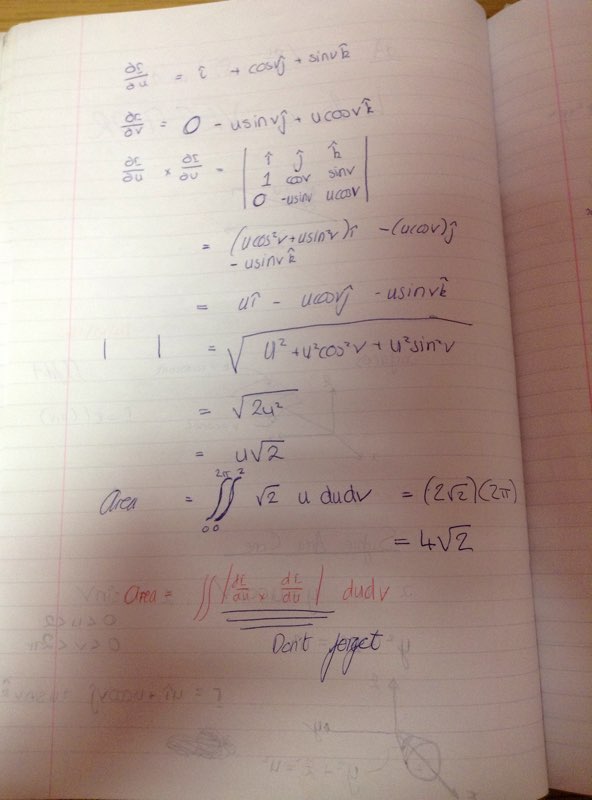 ∂r/∂u = î + cosvĵ + sinvk̂
∂r/∂v = 0 - usinvĵ + ucosvk̂
∂r/∂u × ∂r/∂u = | î ĵ k̂
1 cosv sinv
0 -usinv ucosv |
= (ucos²v + usin²v)î - (ucosv)ĵ
- usinvk̂
= uî - ucosvĵ - usinvk̂
| | = √(u² + u²cos²v + u²sin²v)
= √(2u²)
= u√2
Area = ∫₀^2π ∫₀^2 √2 u dudv = (2√2)(2π)
= 4√2
Area = ∫∫ |dr/du × dr/du| dudv
Don't forget